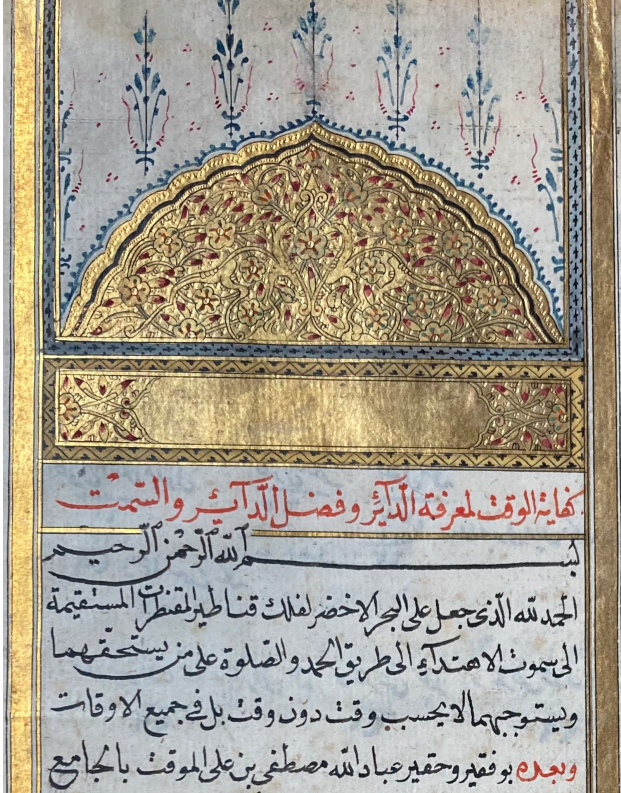 كفاية الوقت لمعرفة الدائر وفضل الدائر والسمت
بسم الله الرحمن الرحيم
الحمد لله الذى جعل على البحر الاخضر لفلك قناطير المقنطرات المستقيمة
الى سموت الاهتداء الى طريق الحمد والصلوة على من يستحقهما
ويستوجبهما لا بحسب وقت دون وقت بل فى جميع الاوقات
وبعده بو فقير وحقير عباد الله مصطفى بن على الموقت بالجامع